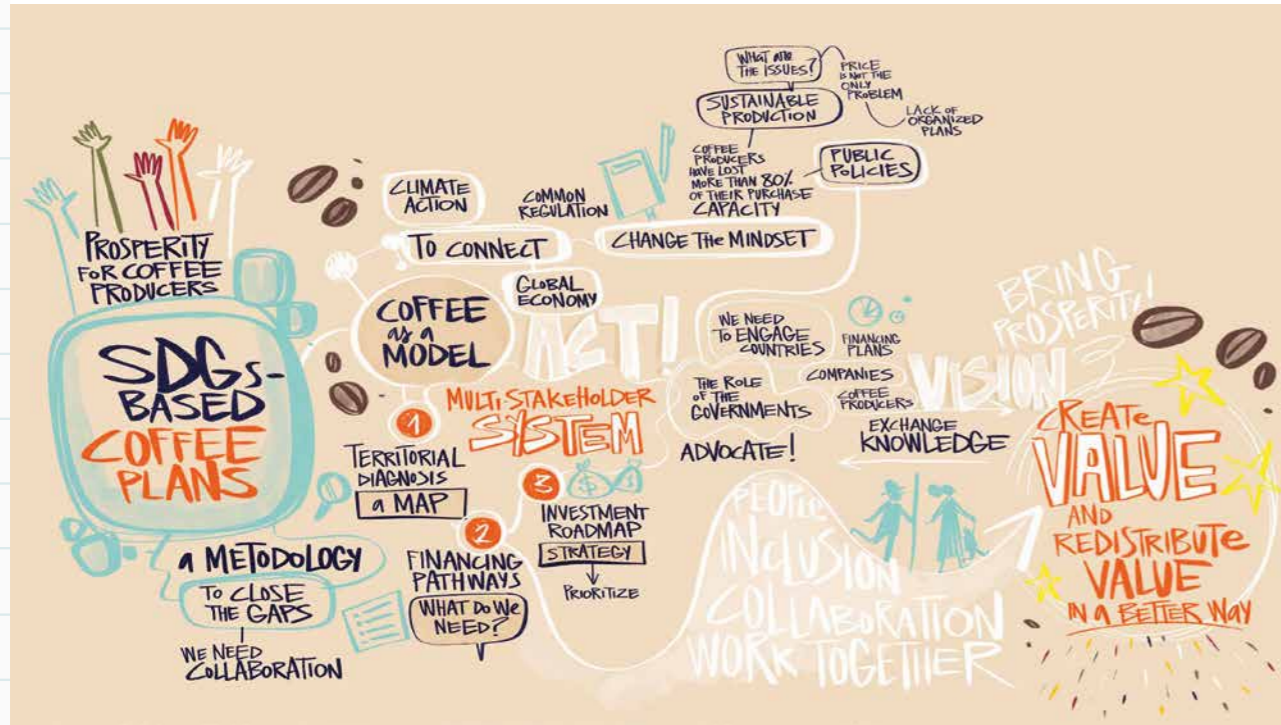 PROSPERITY
FOR COFFEE
PRODUCERS
SDGs-
BASED
COFFEE
PLANS
a METODOLOGY
TO CLOSE
THE GAPS
WE NEED
COLLABORATION
COFFEE
as a
MODEL
CLIMATE
ACTION
TO CONNECT
COMMON
REGULATION
GLOBAL
ECONOMY
CHANGE THE MINDSET
WHAT ARE
THE ISSUES?
PRICE
IS NOT THE
ONLY
PROBLEM
LACK OF
ORGANIZED
PLANS
SUSTAINABLE
PRODUCTION
COFFEE
PRODUCERS
HAVE LOST
MORE THAN 80%
OF THEIR PURCHASE
CAPACITY
PUBLIC
POLICIES
ACT!
MULTISTAKEHOLDER
SYSTEM
1
TERRITORIAL
DIAGNOSIS
a MAP
2
FINANCING
PATHWAYS
WHAT DO WE
NEED?
3
$ $
INVESTMENT
ROADMAP
STRATEGY
PRIORITIZE
WE NEED
TO ENGAGE
COUNTRIES
THE ROLE
OF THE
GOVERNMENTS
ADVOCATE!
FINANCING
PLANS
COMPANIES
COFFEE
PRODUCERS
EXCHANGE
KNOWLEDGE
VISION
BRING
PROSPERITY!
PEOPLE
INCLUSION
COLLABORATION
WORK TOGETHER
CREATE
VALUE
AND
REDISTRIBUTE
VALUE
IN a BETTER WAY